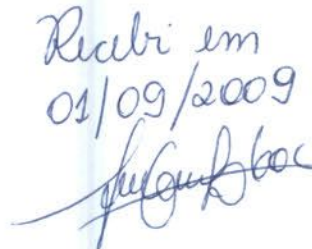 Recebi em
01/09/2009